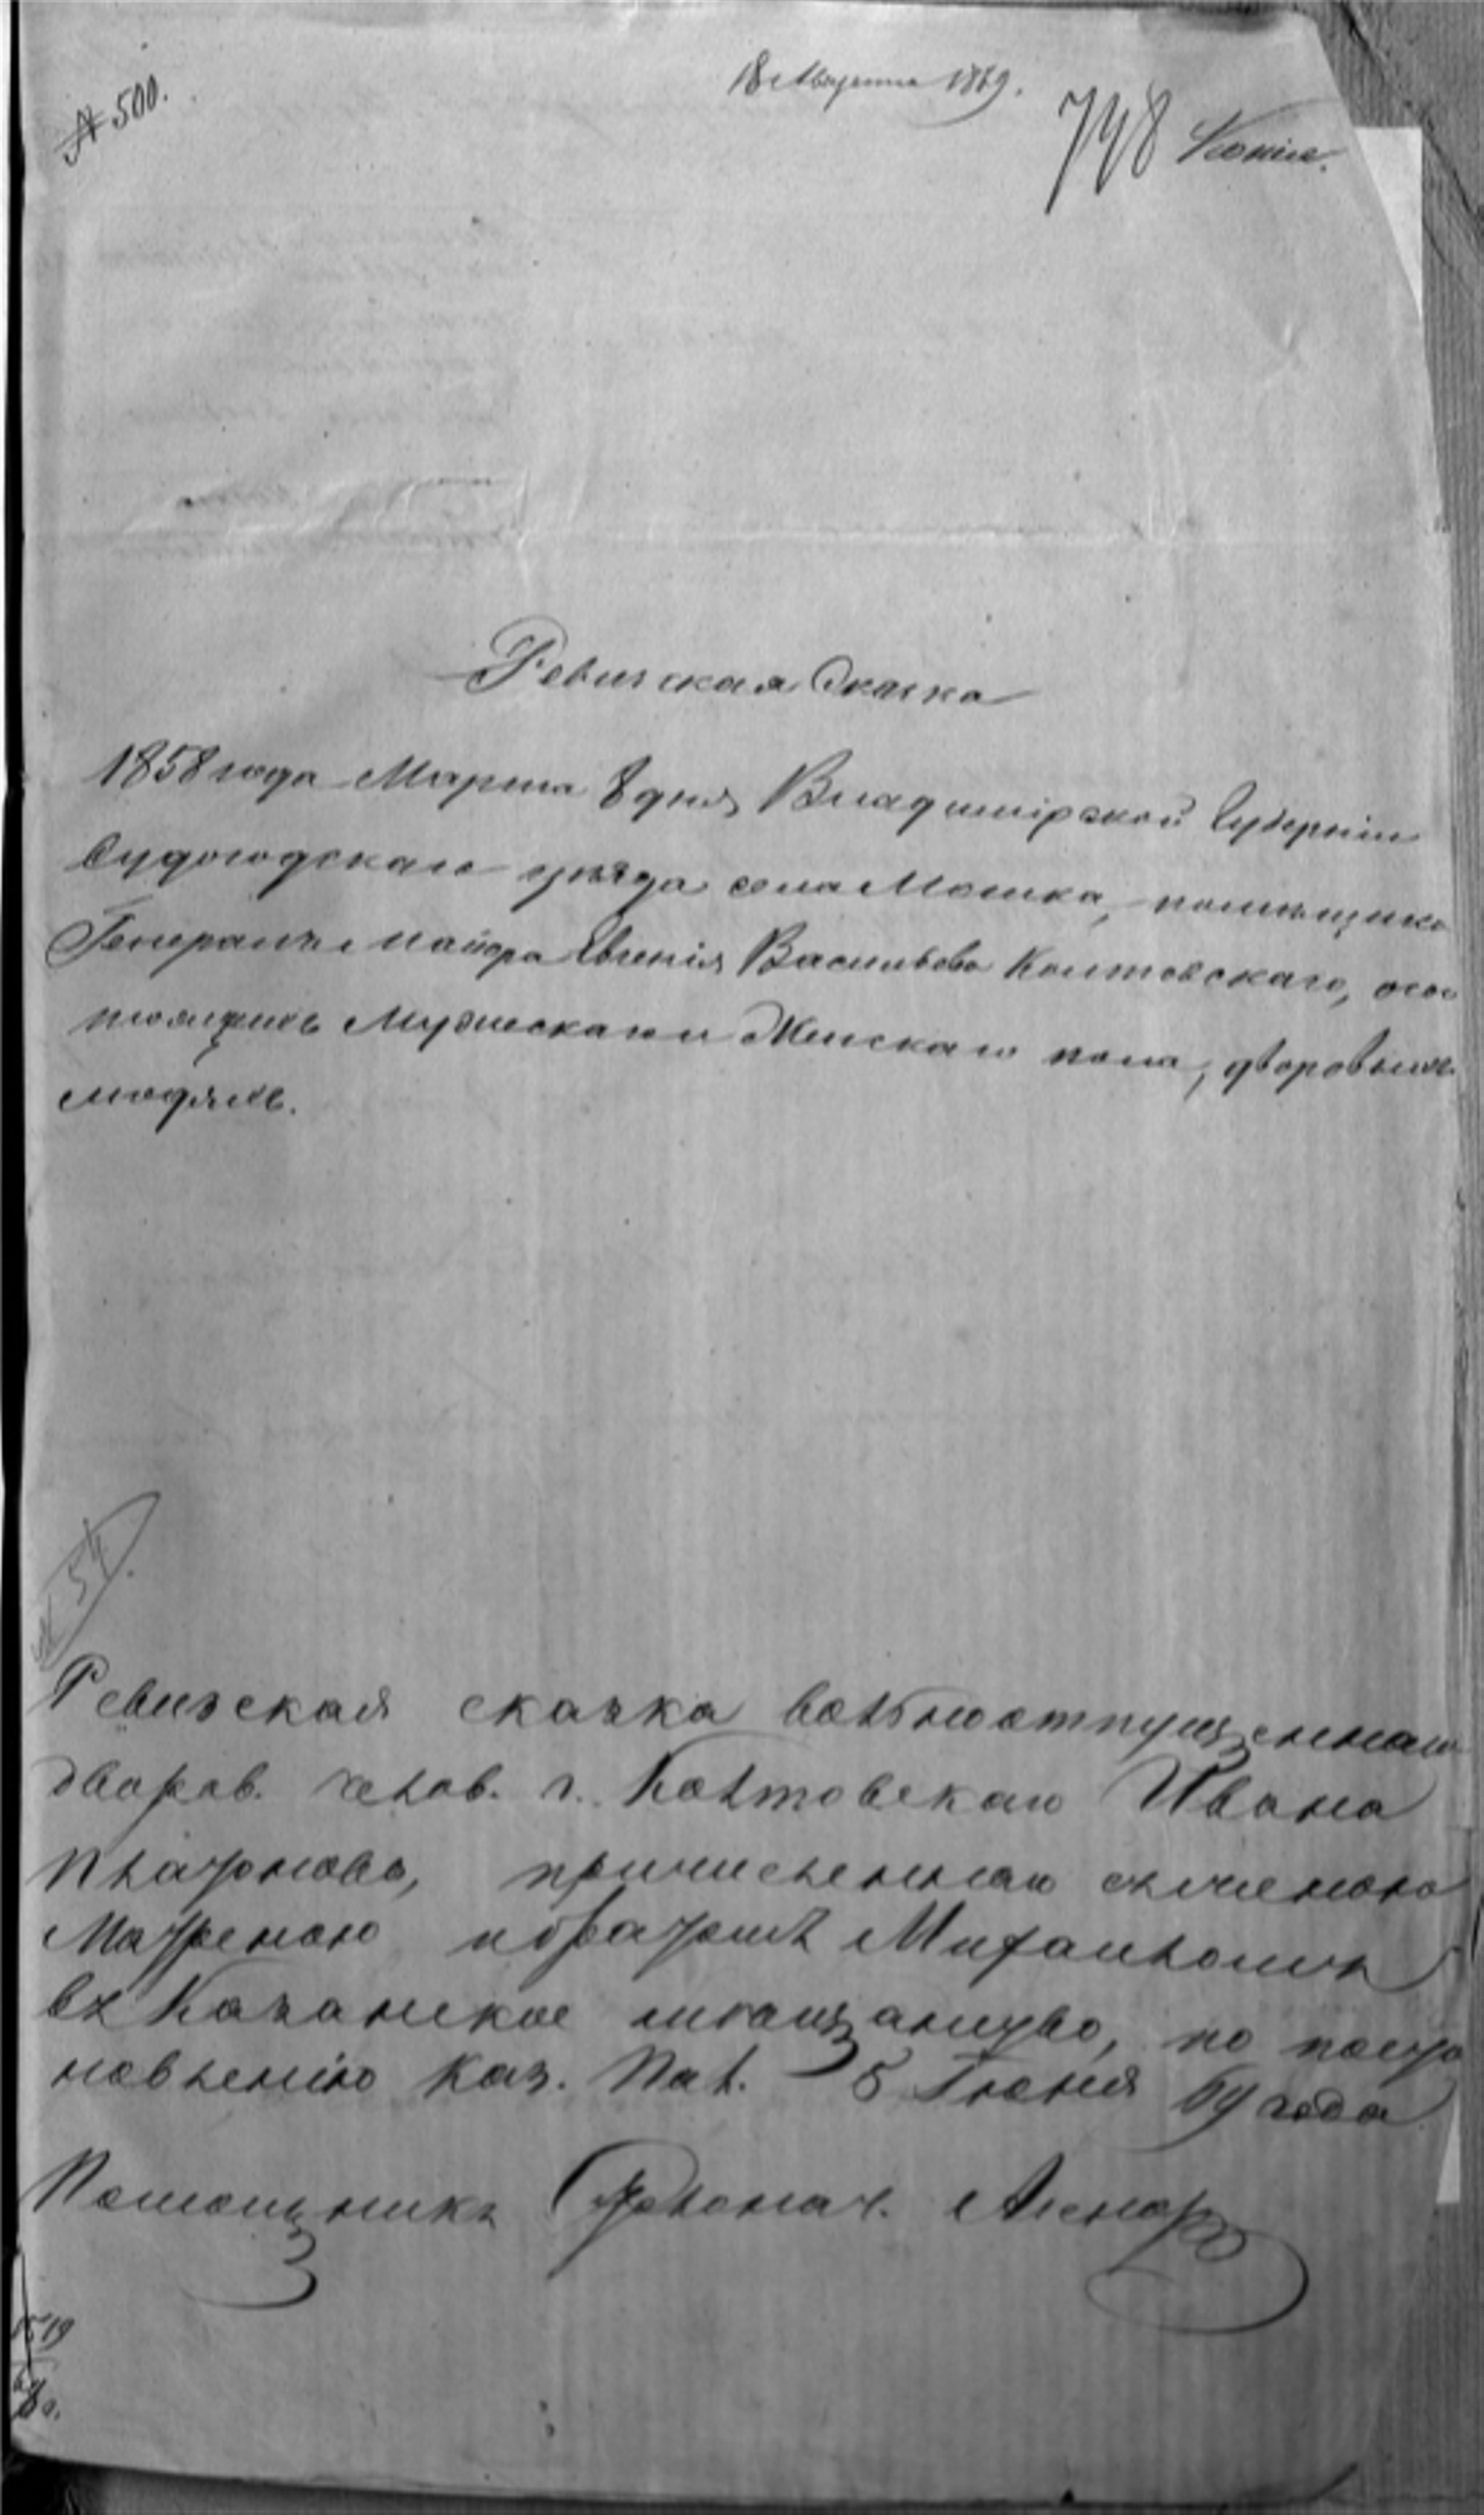 № 500.
18 Августа 1869.
748 Копія.
Ревизская Сказка
1858 года Марта 8 дня, Владимірской Губерніи
Судогодскаго уѣзда села Мошка, помѣщика
Генералъ Маіора Евгенія Васильева Колтовскаго, осос
тоящихъ Мужескаго и Женскаго пола, дворовыхъ
людяхъ.
№ 54.
Ревизская сказка вольноотпущеннаго
дворов. челов. г. Колтовскаго Ивана
Платонова, причисленнаго съ женою
Матреною и братомъ Михаиломъ
въ Казанское мѣщанство, по поста
новленію Каз. Пал. 5 Іюня 69 года
Помощникъ Столонач.
1519